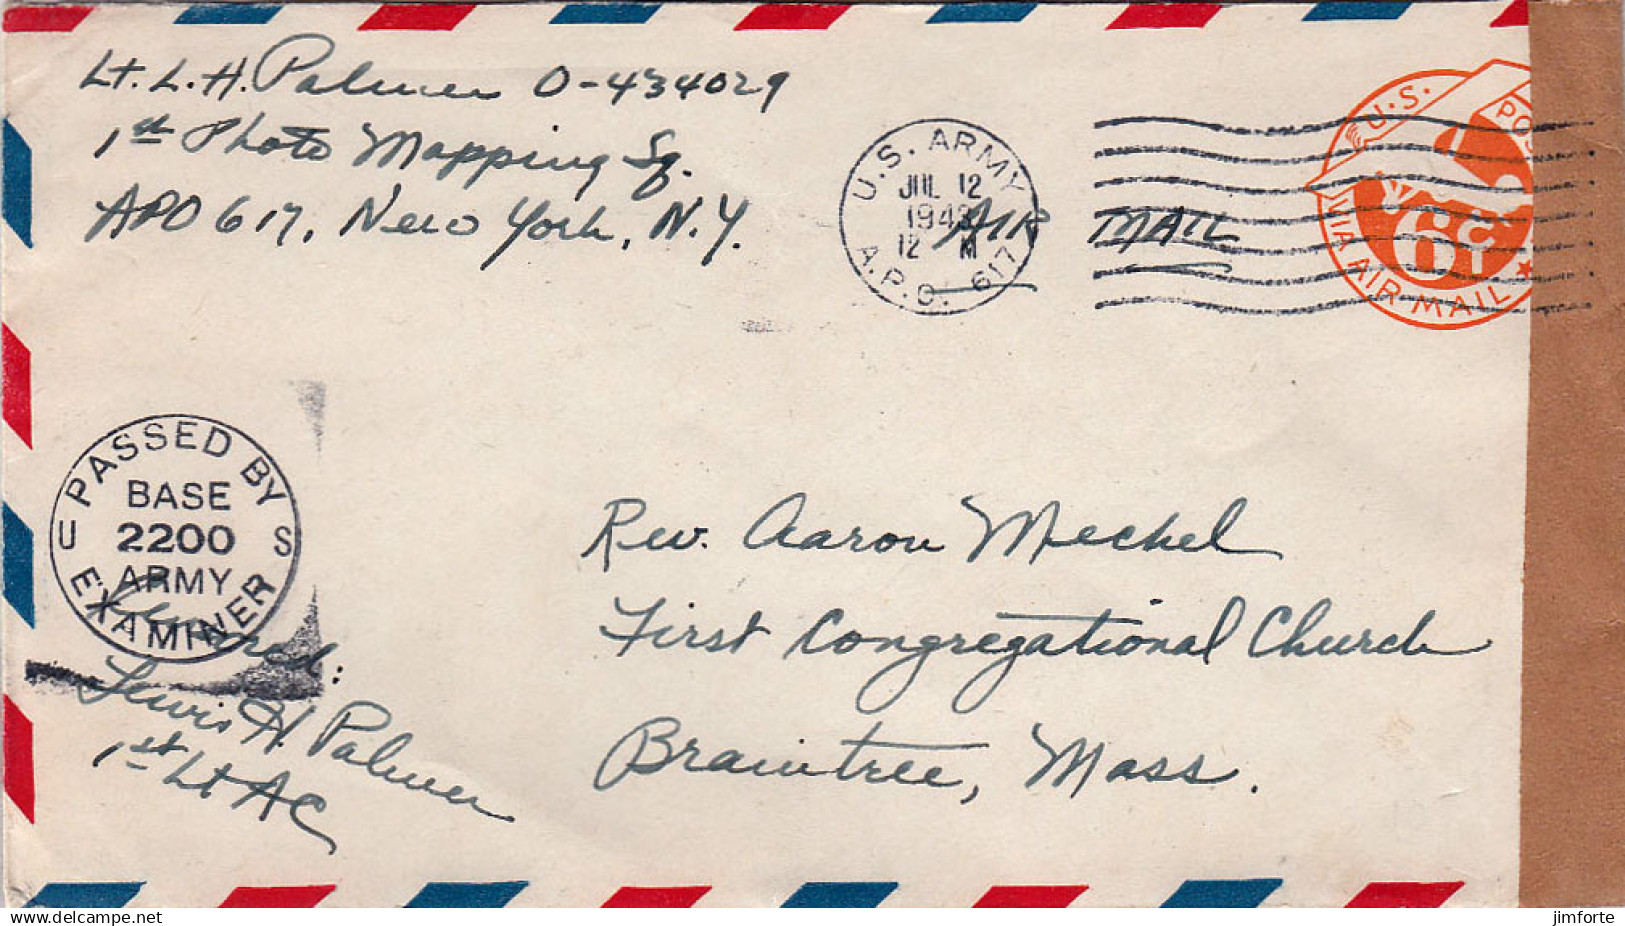 Lt. L. H. Palmer O-434029
1st Photo Mapping Sq.
APO 617, New York, N.Y.
U.S. ARMY
JUL 12
1943
12 M
A.P.O. 617
AIR MAIL
U.S. POS
6c
VIA AIR MAIL
PASSED BY
BASE
U 2200 S
ARMY
EXAMINER
Censored:
Lewis H. Palmer
1st Lt AC
Rev. Aaron Meckel
First Congregational Church
Braintree, Mass.
delcampe.net
jimforte